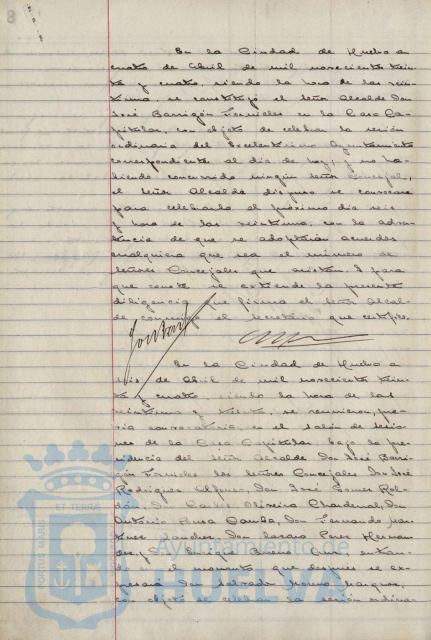 En la Ciudad de Huelva a
cuatro de Abril de mil novecientos trein-
ta y cuatro, siendo la hora de las vein-
tiuna, se constituyó el señor Alcalde Don
José Barrigón Fornieles en la Casa Ca-
pitular, con objeto de celebrar la sesión
ordinaria del Excelentísimo Ayuntamiento
correspondiente al día de hoy, y no ha-
biendo concurrido ningún señor Concejal,
el señor Alcalde dispuso se convocara
para celebrarla el próximo día seis
y hora de las veintiuna, con la adver-
tencia de que se adoptarán acuerdos
cualquiera que sea el número de
señores Concejales que asistan. Y para
que conste se extiende la presente
diligencia que firma el señor Alcal-
de conmigo el Secretario que certifico.
En la Ciudad de Huelva a
seis de Abril de mil novecientos trein-
ta y cuatro, siendo la hora de las
veintiuna y treinta, se reunieron, pre-
via convocatoria, en el salón de sesio-
nes de la Casa Capitular bajo la pre-
sidencia del señor Alcalde Don José Barri-
gón Fornieles los señores Concejales Don José
Rodríguez Alfonso, Don José Gómez Rol-
dán, Don Carlos Oliveira Chardenal, Don
Antonio Pousa Camba, Don Fernando
Sánchez, Don Pérez Hernán-
dez, y Don Enrique Bueno entran-
do en el momento que después se ex-
presará Don Salvador Moreno Márquez,
con objeto de celebrar la sesión ordina-
PORTUS MARIS
ET TERRÆ
Ayuntamiento de
HUELVA
8